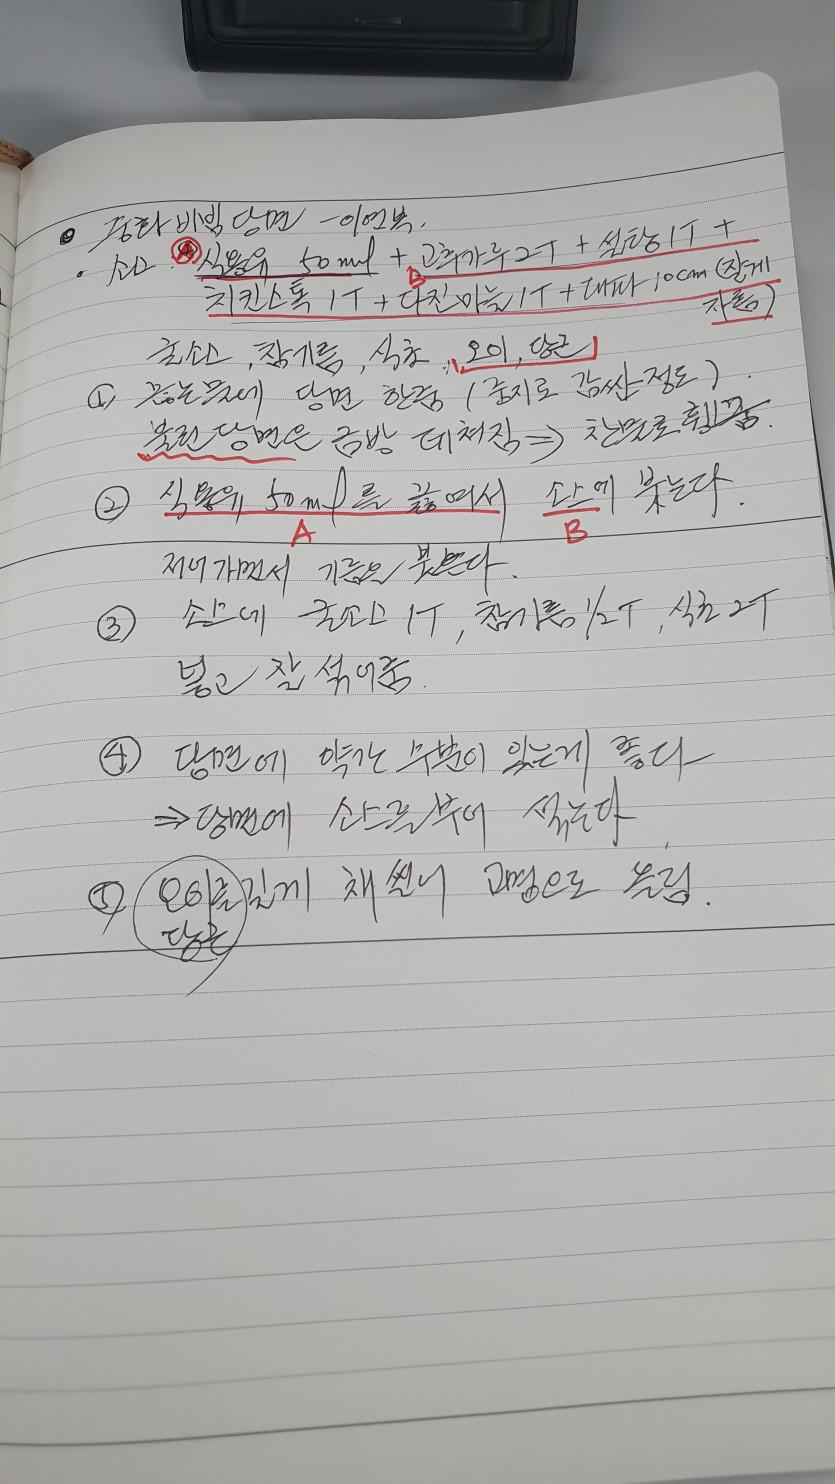 중화 비빔당면 - 이연복.
· 소스 : Ⓐ 식용유 50ml + 고춧가루 2T + 설탕 1T +
B
치킨스톡 1T + 다진마늘 1T + 대파 10cm (잘게
자름)
굴소스, 참기름, 식초, 오이, 당근
① 끓는물에 당면 한줌 (중지로 감싼 정도).
불린당면은 금방 데쳐짐 ⇒ 찬물로 헹굼.
② 식용유 50ml를 끓여서 소스에 붓는다.
A B
저어가면서 기름을 붓는다.
③ 소스에 굴소스 1T, 참기름 1/2T, 식초 2T
붓고 잘 섞어줌.
④ 당면에 약간 수분이 있는게 좋다
⇒ 당면에 소스를 부어 섞는다
⑤ 오이를 길게 채썰어 고명으로 올림.
당근